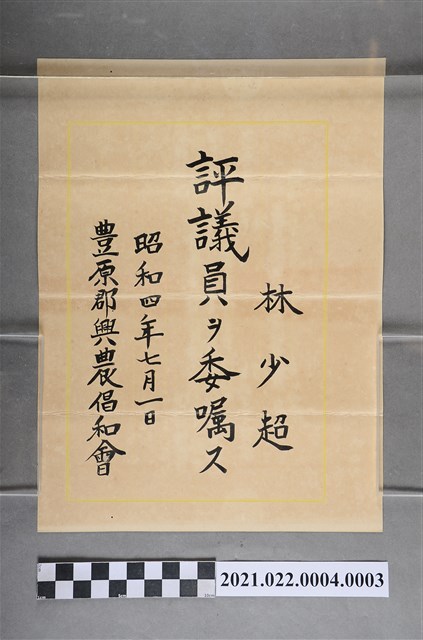 林少超
評議員ヲ委嘱ス
昭和四年七月一日
豊原郡興農倡和會
2021.022.0004.0003